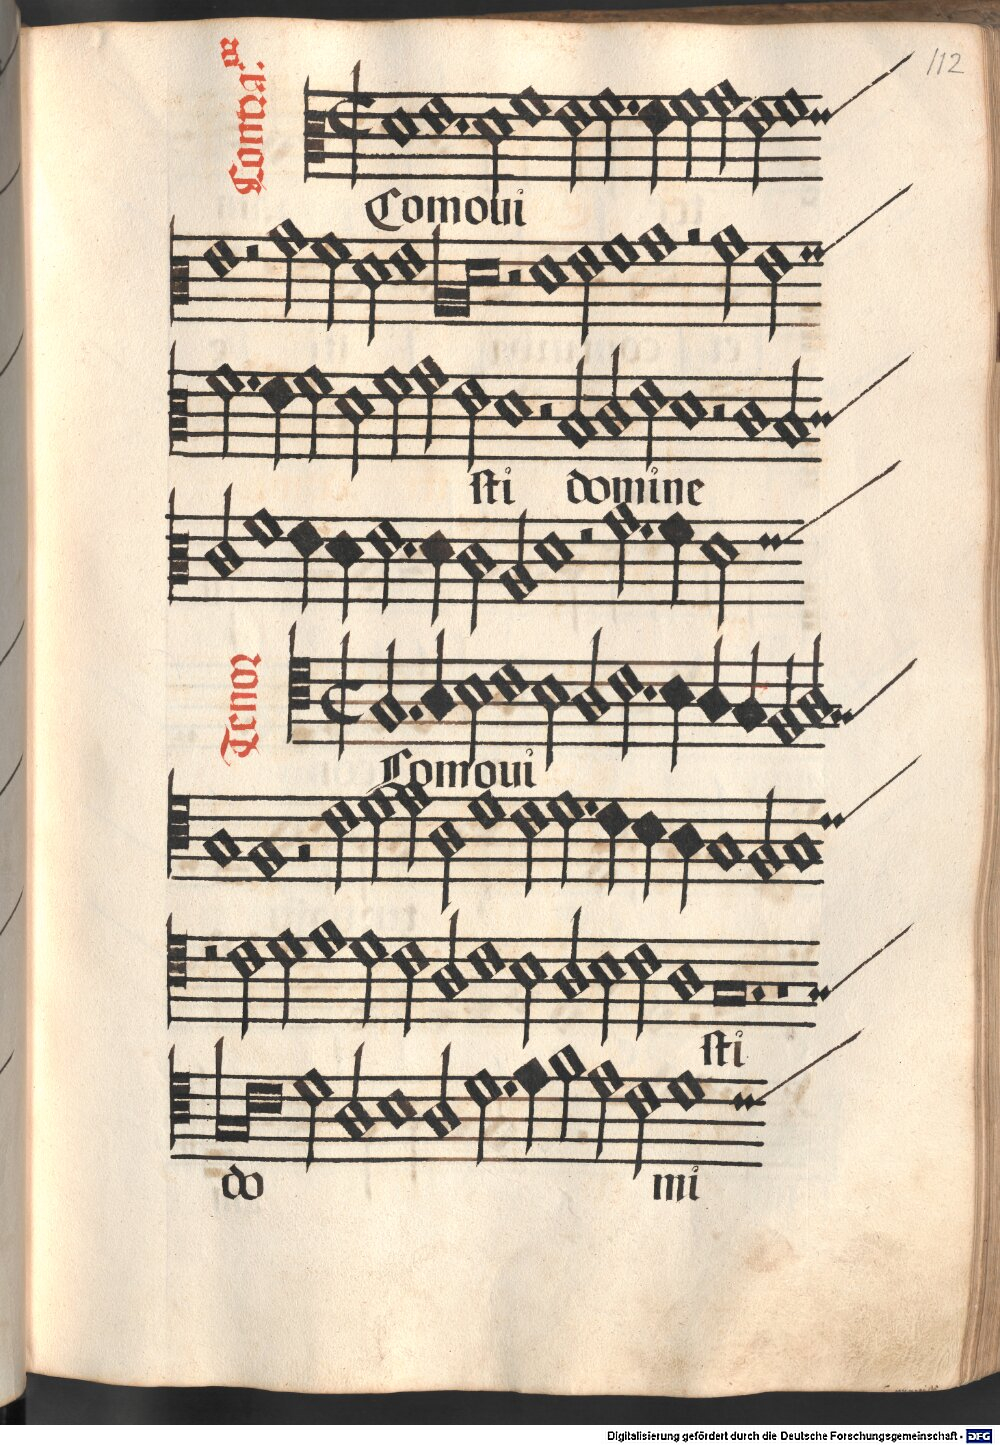 112
Contra
Comoui
sti domine
Tenor
Comoui
sti
do mi
Digitalisierung gefördert durch die Deutsche Forschungsgemeinschaft - DFG